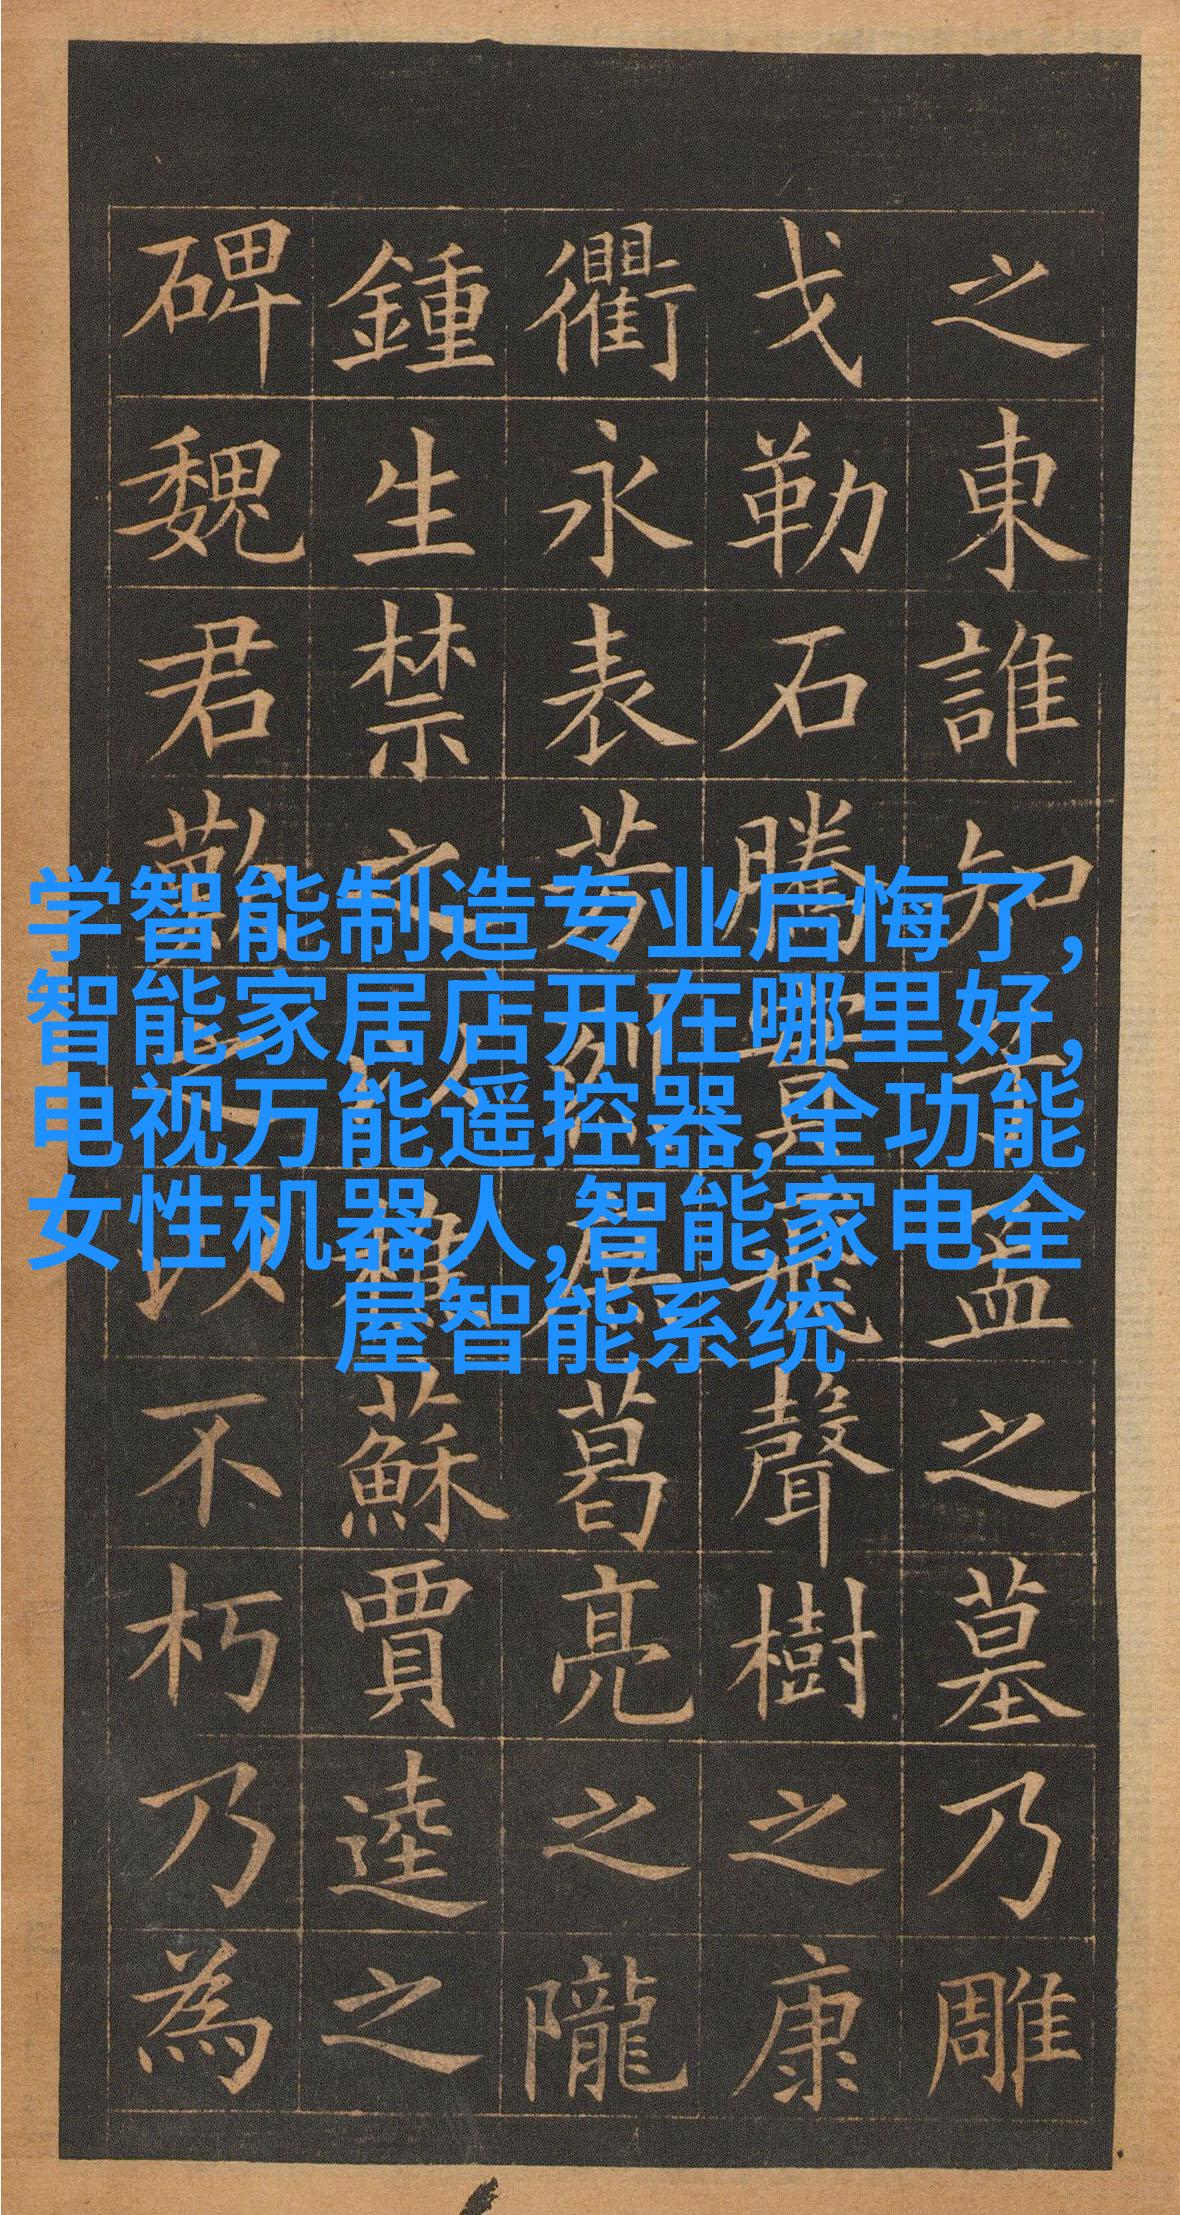 之東誰知子孟之墓乃雕
戈勒石騰實飛聲樹之康
衢永表芳烈葛亮之隴
鍾生禁之以樵蘇賈逵之
碑魏君之以不朽乃為
学智能制造专业后悔了,
智能家居店开在哪里好,
电视万能遥控器,全功能
女性机器人,智能家电全
屋智能系统